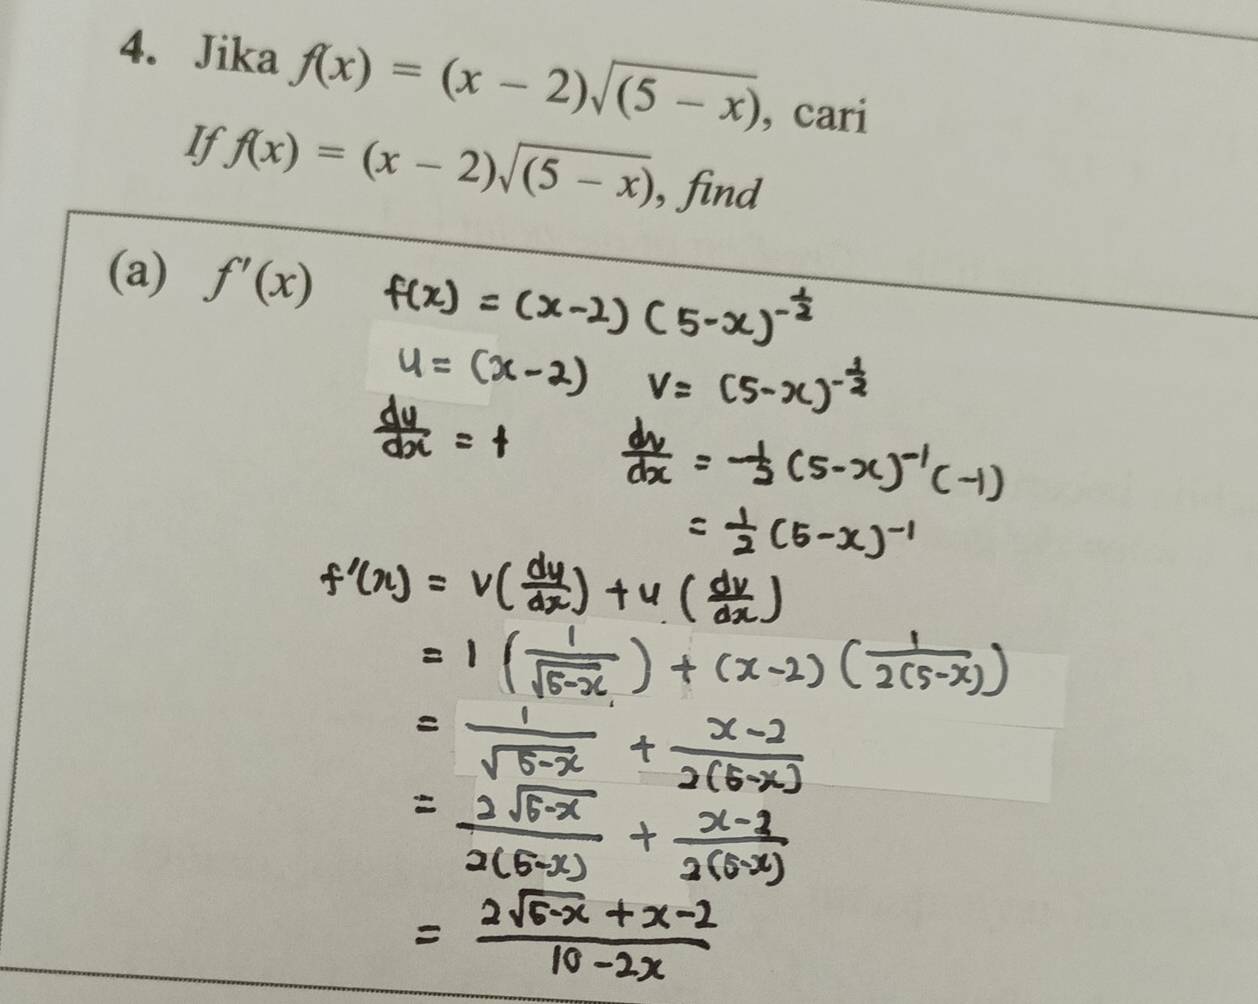 4. Jika f(x) = (x − 2)√(5 − x), cari
If f(x) = (x − 2)√(5 − x), find
(a) f'(x) f(x) = (x-2)(5-x)^-1/2
u = (x-2) v = (5-x)^-1/2
du/dx = 1 dv/dx = -1/2 (5-x)^-1 (-1)
= 1/2 (5-x)^-1
f'(x) = v(du/dx) + u(dv/dx)
= 1(1/√5-x) + (x-2)(1/2(5-x))
= 1/√5-x + x-2/2(5-x)
= 2√5-x/2(5-x) + x-2/2(5-x)
= 2√5-x + x-2/10-2x